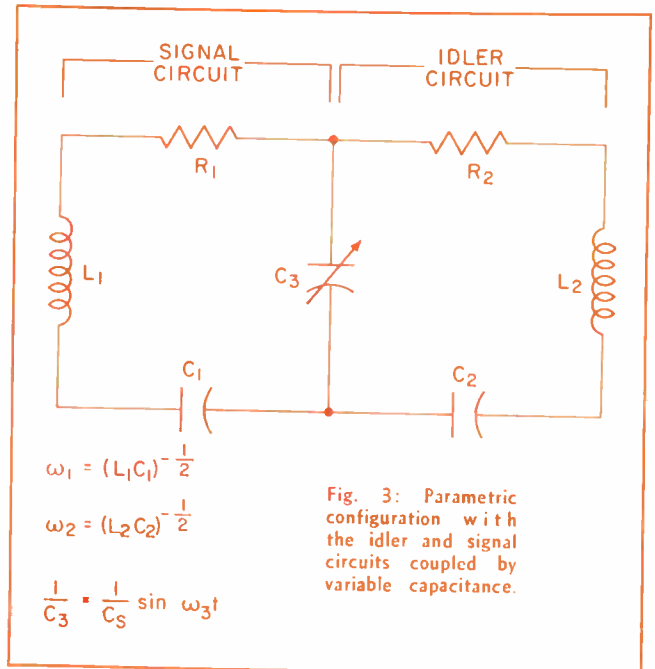 SIGNAL CIRCUIT
IDLER CIRCUIT
R₁
R₂
L₁
C₃
L₂
C₁
C₂
ω₁ = (L₁C₁)^-1/2
ω₂ = (L₂C₂)^-1/2
1/C₃ = 1/C_S sin ω₃t
Fig. 3: Parametric
configuration with
the idler and signal
circuits coupled by
variable capacitance.